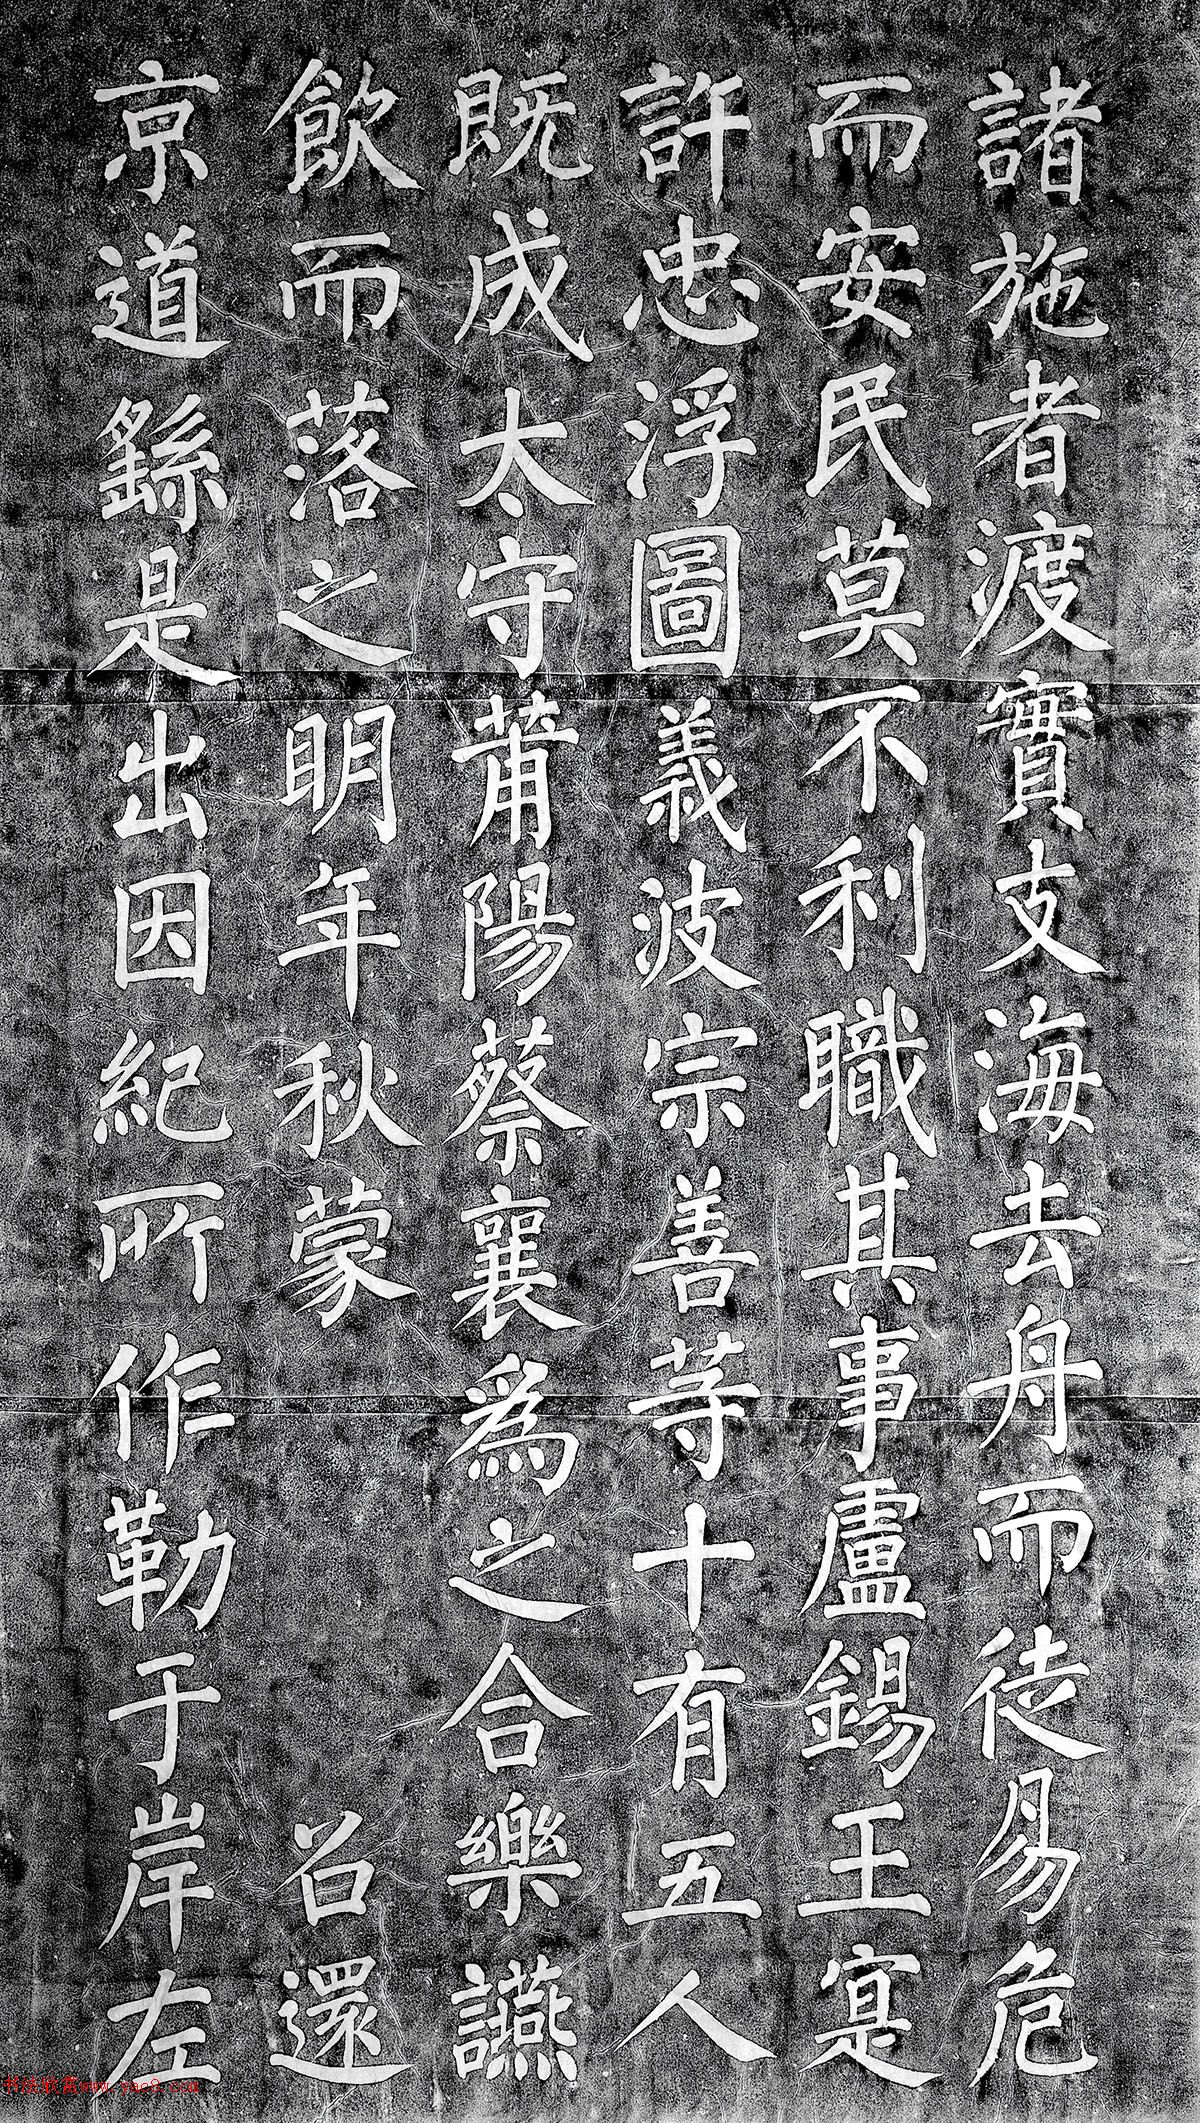 諸施者渡實支海去舟而徒易危
而安民莫不利職其事盧錫王寔
許忠浮圖義波宗善等十有五人
既成太守莆陽蔡襄為之合樂讌
飲而落之明年秋蒙 召還
京道繇是出因紀所作勒于岸左
书法欣赏www.yac8.com